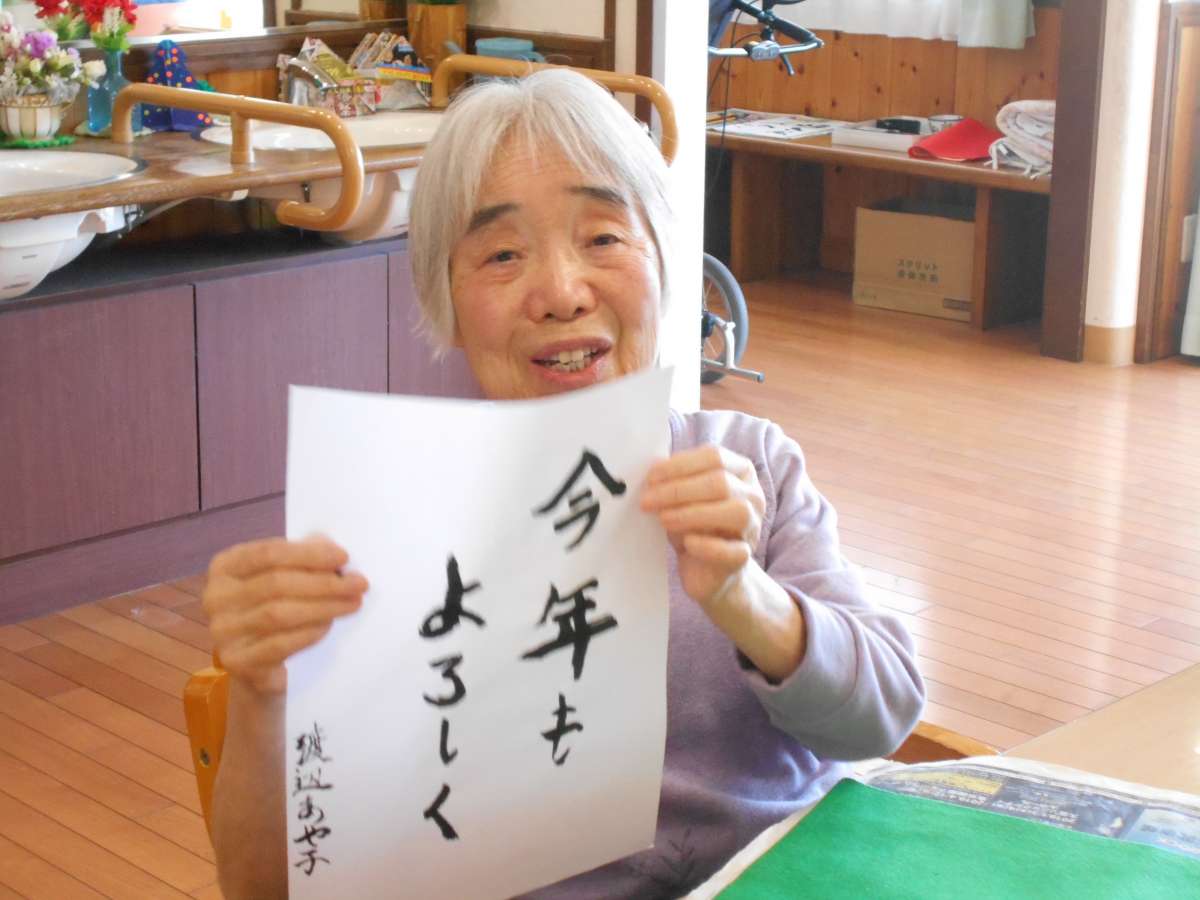 今年も
よろしく
渡辺あや子